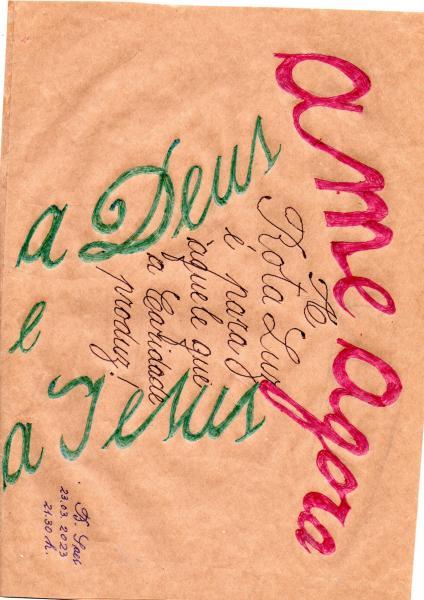 ame agora
A
Rota Luz
é para
àquele que
a Caridade
produz!
a Deus
e
a Jesus
23.03.2023
21.30 h.